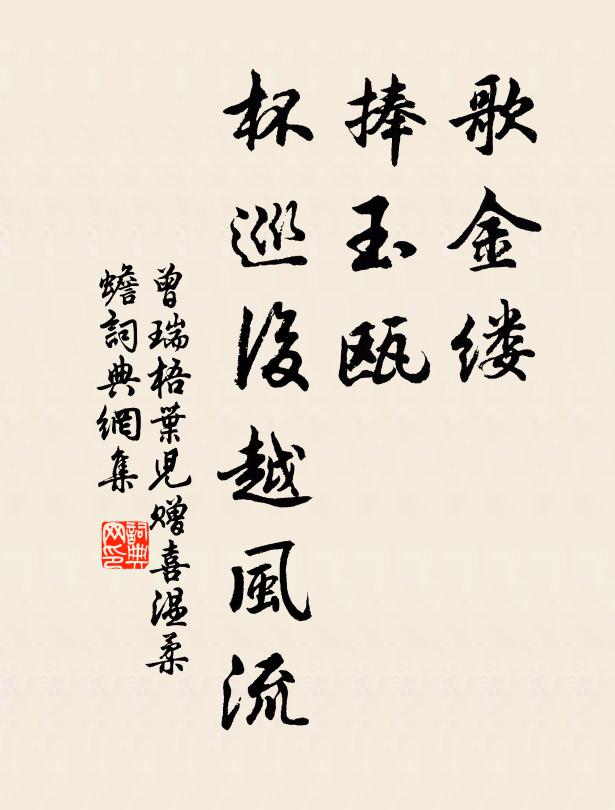 歌金缕
捧玉瓯
杯巡後越風流
曾瑞梧葉児赠喜温柔
蟾詞典網集
詞典网印